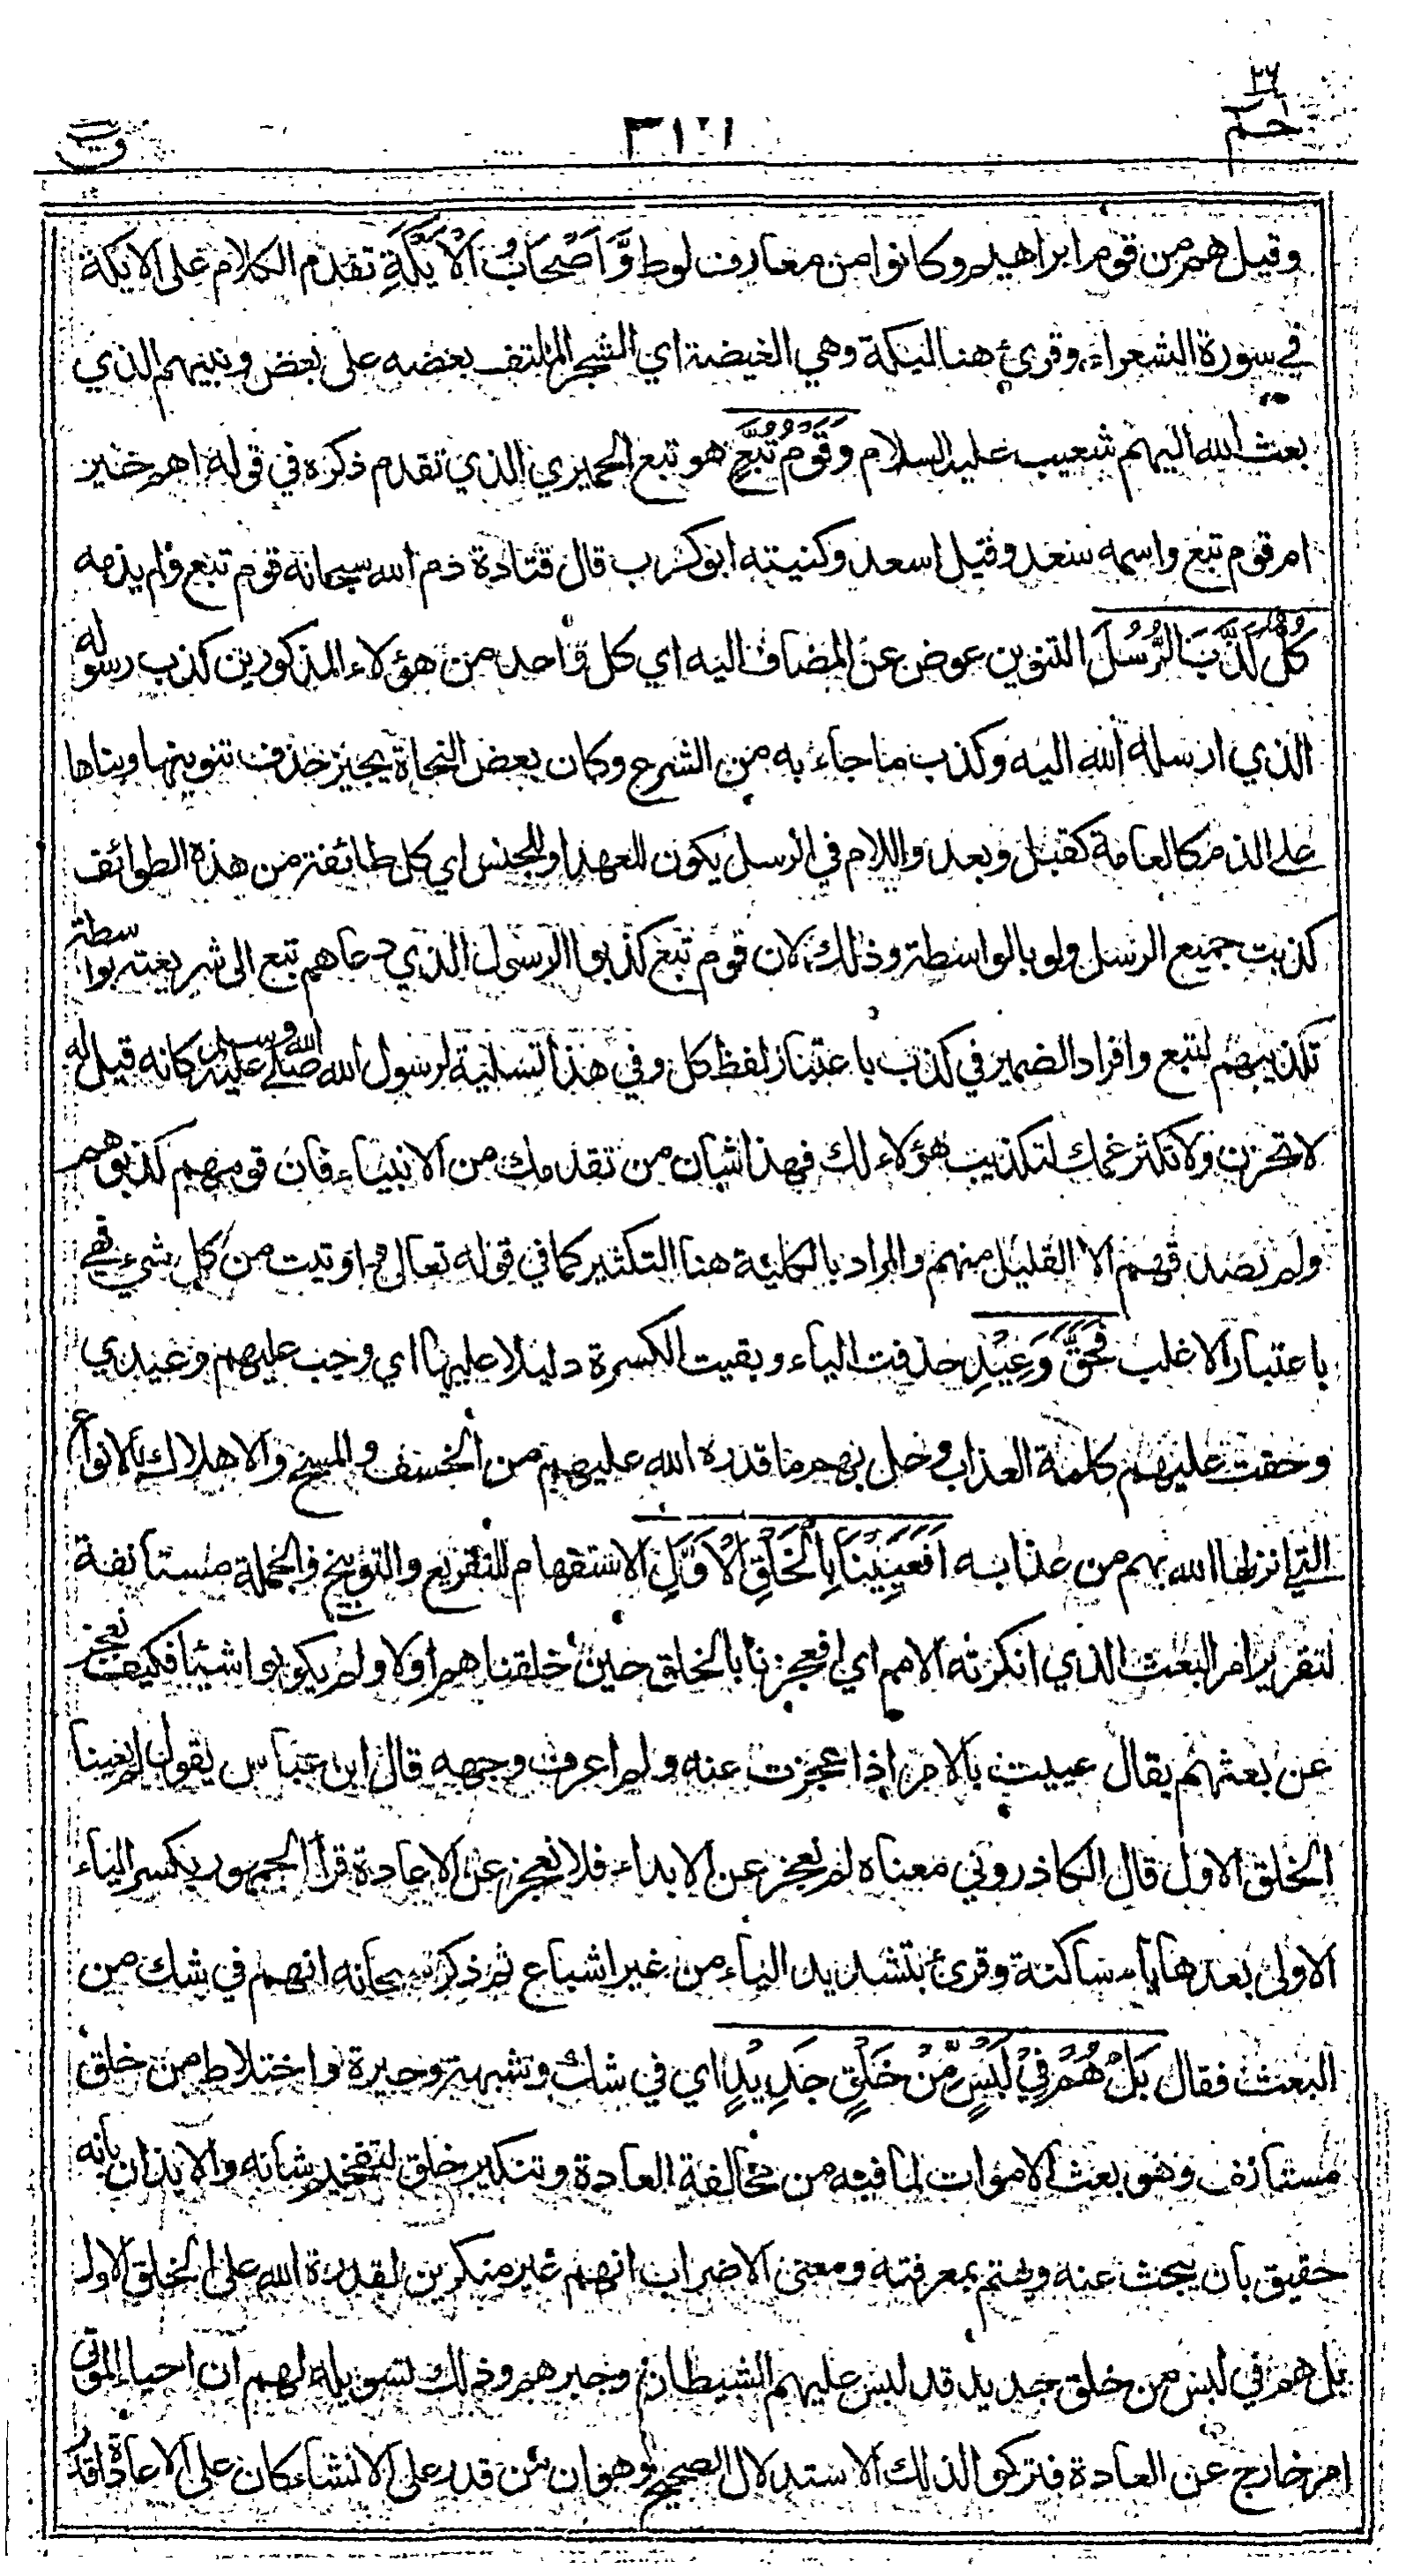 ٢٦
حم
٣١٢١
ق
وقيل هم من قوم ابراهيم وكانوا من معارف لوط وَّاَصْحَابُ الْاَيْكَةِ تقدم الكلام على الايكة
في سورة الشعراء، وقرئ هنا ليكة وهي الغيضة اي الشجر الملتف بعضه على بعض ونبيهم الذي
بعث الله اليهم شعيب عليه السلام وَقَوْمُ تُبَّعٍ هو تبع الحميري الذي تقدم ذكره في قوله اهم خير
ام قوم تبع واسمه سعد وقيل اسعد وكنيته ابو كرب قال قتادة ذم الله سبحانه قوم تبع ولم يذمه
كُلٌّ كَذَّبَ الرُّسُلَ التنوين عوض عن المضاف اليه اي كل واحد من هؤلاء المذكورين كذب رسوله
الذي ارسله الله اليه وكذب ما جاء به من الشرع وكان بعض النحاة يجيز حذف تنوينها وبناها
على الضم كالعامة كقبل وبعد واللام في الرسل يكون للعهد او للجنس اي كل طائفة من هذه الطوائف
كذبت جميع الرسل ولو بالواسطة وذلك لان قوم تبع كذبوا الرسول الذي دعاهم تبع الى شريعته بواسطة
تكذيبهم لتبع وافراد الضمير في كذب باعتبار لفظ كل وفي هذا تسلية لرسول الله صلى الله عليه وسلم كانه قيل له
لا تحزن ولا تكثر غمك لتكذيب هؤلاء لك فهذا شان من تقدمك من الانبياء فان قومهم كذبوهم
ولم يصدقهم الا القليل منهم والمراد بالكلية هنا التكثير كما في قوله تعالى واوتيت من كل شيء فهي
باعتبار الاغلب فَحَقَّ وَعِيْدِ حذفت الياء وبقيت الكسرة دليلا عليها اي وجب عليهم وعيدي
وحقت عليهم كلمة العذاب وحل بهم ما قدره الله عليهم من الخسف والمسخ والاهلاك بالانواع
التي انزلها الله بهم من عذابه اَفَعَيِيْنَا بِالْخَلْقِ الْاَوَّلِ الاستفهام للتقريع والتوبيخ والجملة مستانفة
لتقرير امر البعث الذي انكرته الامم اي افعجزنا بالخلق حين خلقناهم اولا ولم يكونوا شيئا فكيف نعجز
عن بعثهم يقال عييت بالامر اذا عجزت عنه ولم اعرف وجهه قال ابن عباس يقول لم يعينا
الخلق الاول قال الكاذروني معناه لم نعجز عن الابداء فلا نعجز عن الاعادة قرأ الجمهور بكسر الياء
الاولى بعدها ياء ساكنة وقرئ بتشديد الياء من غير اشباع ثم ذكر سبحانه انهم في شك من
البعث فقال بَلْ هُمْ فِيْ لَبْسٍ مِّنْ خَلْقٍ جَدِيْدٍ اي في شك وشبهة وحيرة واختلاط من خلق
مستانف وهو بعث الاموات لما فيه من مخالفة العادة وتنكير خلق لتفخيم شانه والايذان بانه
حقيق بان يبحث عنه ويهتم بمعرفته ومعنى الاضراب انهم غير منكرين لقدرة الله على الخلق الاول
بل هم في لبس من خلق جديد قد لبس عليهم الشيطان وحيرهم وذلك لتسويله لهم ان احياء الموتى
امر خارج عن العادة فتركوا لذلك الاستدلال الصحيح وهو ان من قدر على الانشاء كان على الاعادة اقدر